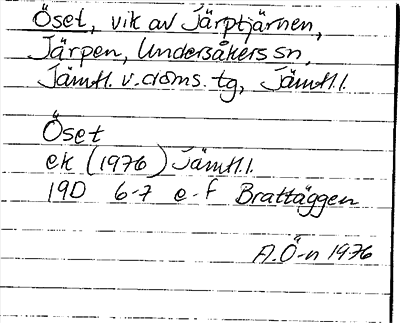 Öset, vik av Järptjärnen,
Järpen, Undersåkers sn,
Jämtl. v. doms. tg, Jämtl. l.
Öset
ek (1976) Jämtl. l.
19D 6-7 e-f Brattäggen
A.Ö-n 1976